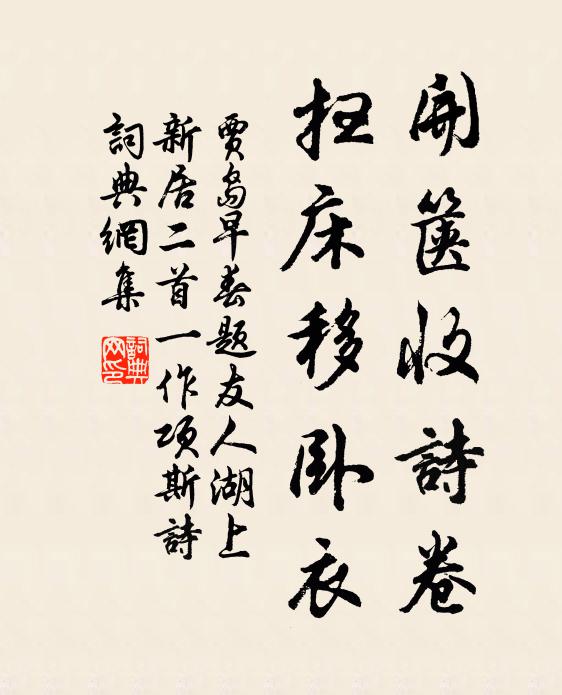 開篋收詩卷
扫床移卧衣
賈島早春题友人湖上
新居二首一作項斯詩
詞典網集
詞典
网印